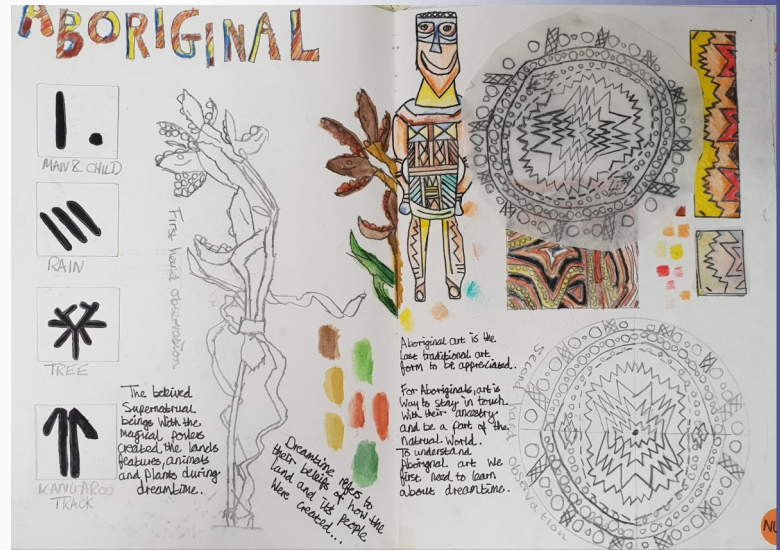 ABORIGINAL
MAN & CHILD
RAIN
TREE
KANGAROO
TRACK
First hand observation
The belived
Supernatrual
beings with the
magical powers
created the lands
features, animals
and plants during
dreamtime..
Dreamtime refers to
their beleifs of how the
land and its people
were created...
Aboriginal art is the
last traditional art
form to be appreciated..
For Aboriginals, art is
way to stay in touch
with their ancestry
and be a part of the
natrual world.
To understand
Aboriginal art we
first need to learn
about dreamtime.
Second hand observation
NU